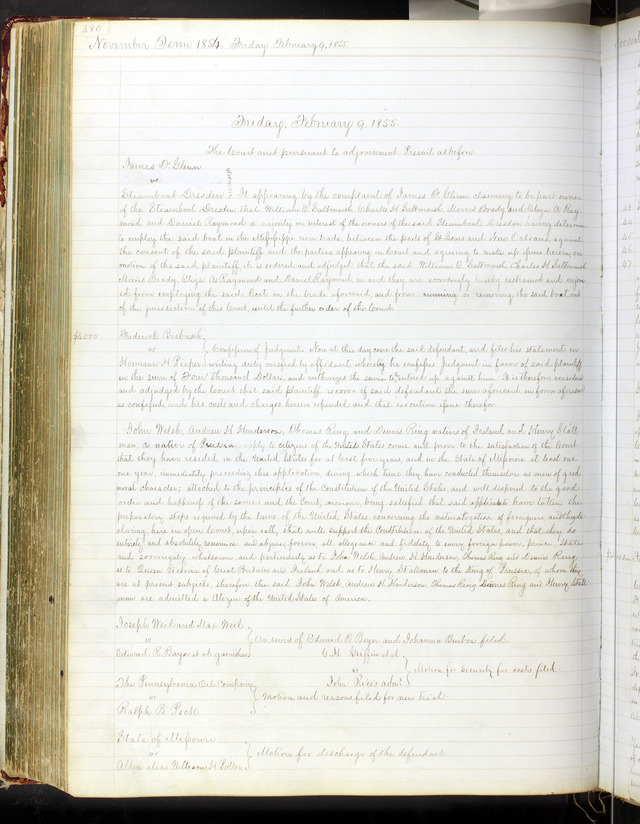 480
November Term 1854. Friday February 9, 1855.
Friday, February 9, 1855
The Court met pursuant to adjournment Present as before.
James D. Glenn
vs
Steamboat Dresden It appearing by the complaint of James D. Glenn claiming to be part owner
of the Steamboat Dresden that William Saltmarsh Charles H. Saltmarsh Morris Brady and Eliza A. Ray-
mond and Daniel Raymond a majority in interest of the owners of the said Steamboat Dresden having determined
to employ the said boat in the Mississippi river trade between the ports of St Louis and New Orleans, against
the consent of the said plaintiff and the parties appearing in Court and agreeing to make up issue herein on
motion of the said plaintiff, it is ordered and adjudged that the said William Saltmarsh Charles H. Saltmarsh
Morris Brady, Eliza A. Raymond and Daniel Raymond be and they are accordingly hereby restrained and enjoin-
ed from employing the said Boat in the trade aforesaid and from running or removing the said boat out
of the jurisdiction of this Court, until the further order of the Court.
$4000 Frederick Biebusch
vs Confession of Judgment. Now at this day come the said defendant, and files his statement in
Hermann H. Piepen writing duly verified by affidavit whereby he confesses Judgment in favor of said plaintiff
in the sum of Four thousand Dollars, and authorizes the same to be entered up against him. It is therefore considered
and adjudged by the Court that said plaintiff recover of said defendant the sum aforesaid in form aforesaid
as confessed, and his costs and charges herein expended, and that execution issue therefor.
John Welsh, Andrew H. Henderson, Thomas Ring and Dennis Ring natives of Ireland and Henry Stall-
man, a native of Prussia apply to citizens of the United States come and prove to the satisfaction of the Court
that they have resided in the United States for at least five years, and in the State of Missouri at least one
one year, immediately preceding this application, during which time they have conducted themselves as men of good
moral character; attached to the principles of the Constitution of the United States and well disposed to the good
order and happiness of the same; and the Court, moreover, being satisfied that said applicants have taken the
preparatory steps required by the laws of the United States concerning the naturalization of foreigners and they de-
claring here in open Court, upon oath, that will support the Constitution of the United States, and that they do
entirely and absolutely renounce and abjure forever, all allegiance and fidelity to every foreign power, prince, State
and sovereignty whatsoever, and particularly as to John Welsh, Andrew H. Henderson, Thomas Ring and Dennis Ring
as to Queen Victoria of Great Britain and Ireland and as to Henry Stallman to the King of Prussia, of whom they
are at present subjects; therefore the said John Welsh Andrew H. Henderson, Thomas Ring Dennis Ring and Henry Stall-
man are admitted a Citizen of the United States of America.
Joseph Weil and Max Weil
vs Answers of Edward R. Bayer and Johanna filed.
Edward R. Bayer et al garnishees
G. H. Griffin et al
vs Motion for security for costs filed.
John Rice's admr
The Pennsylvania Oil Company
vs Motion and reasons filed for new trial.
Ralph B. Peck
State of Missouri
vs Motion for discharge of the defendant.
Allen alias William H. Potter